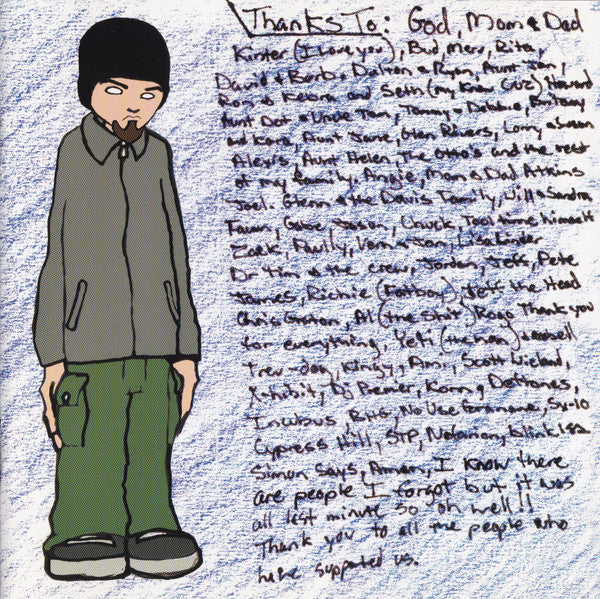 Thanks To: God, Mom & Dad
Kirster (I Love you), Bud, Merv, Rita,
David & Barb, Dalton & Ryan, Aunt Jan,
Ron & Kebra and Seth (my Cuz) Howard
Aunt Dot & Uncle Tom, Tommy & Debbie, Brittany
and Kara, Aunt Jane, Glen Rivers, Larry &
Alexis, Aunt Helen, The Otto's and the rest
of my family. Angie, Mom & Dad Atkins
Joel. Glenn & the Davis Family, Will & Sandra
Fawn, Gabe, Jason, Chuck, Tool himself
Zack, Paully, Vern & Jon, Lisa
Dr Tim & the crew, Jordan, Jeff, Pete
James, Richie (Fatboy), Jeff the Head
Chris, Al (the Shit) Rogo Thank you
for everything, Yeti (the man) &
Trev-dog, Kingy, Ami, Scott Wieland,
X-hibit, Dj Premier, Korn, Deftones,
Incubus, BHG, No Use for a name, Sx-10
Cypress Hill, STP, Notorion, blink 182
Simon Says, Aman, I know there
are people I forgot but it was
all last minute so oh well!!
Thank you to all the people who
have supported us.